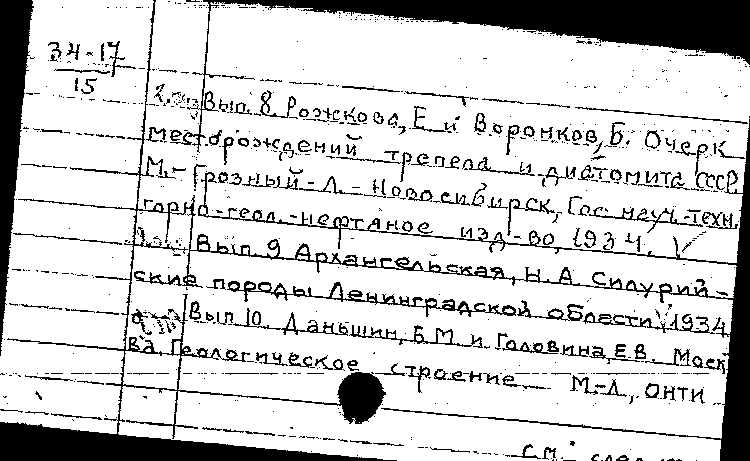 34-17
15
2. Вып. 8. Рожкова, Е и Воронков, Б. Очерк
месторождений трепела и диатомита СССР.
М.-Грозный-Л.-Новосибирск, Гос. науч.-техн.
горно-геол.-нефтяное изд-во, 1934.
Вып. 9 Архангельская, Н.А. Силурий-
ские породы Ленинградской области 1934
Вып 10. Даньшин, Б.М. и Головина, Е.В. Моск
ва. Геологическое строение. М.-Л., ОНТИ
См.